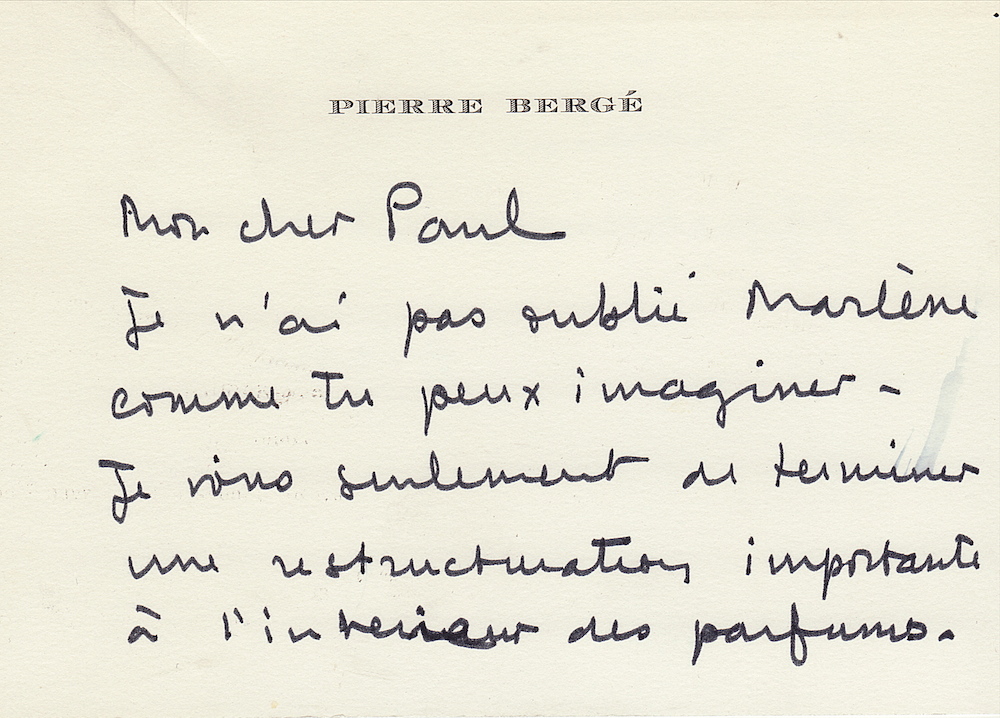 PIERRE BERGÉ
Mon cher Paul
Je n'ai pas oublié Marlène
comme tu peux imaginer -
Je viens seulement de terminer
une restructuration importante
à l'intérieur des parfums.